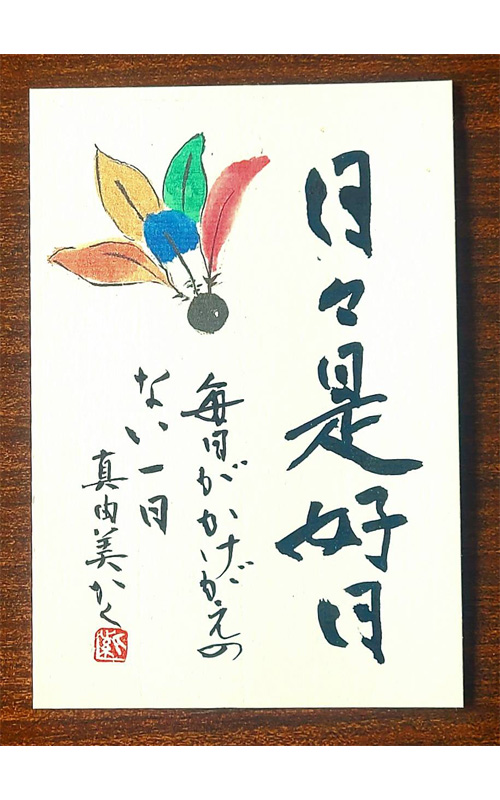 日々是好日
毎日がかけがえの
ない一日
真由美かく